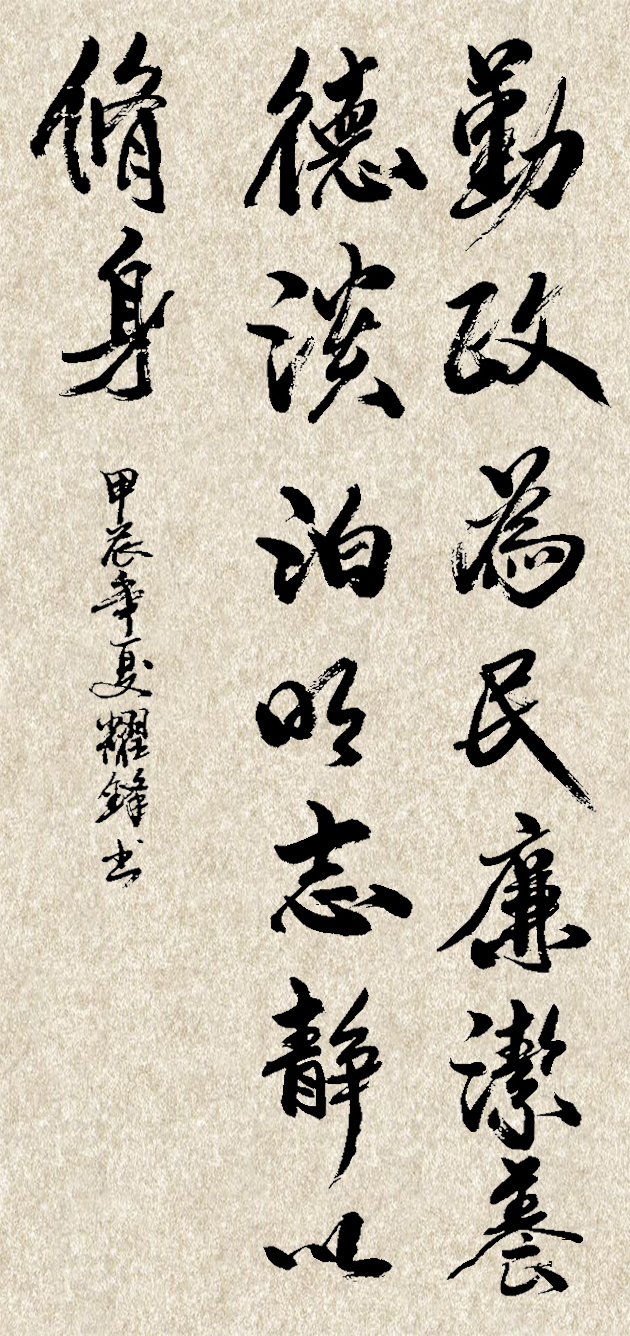 勤政為民廉潔養
德淡泊明志靜以
脩身
甲辰年夏耀鋒书